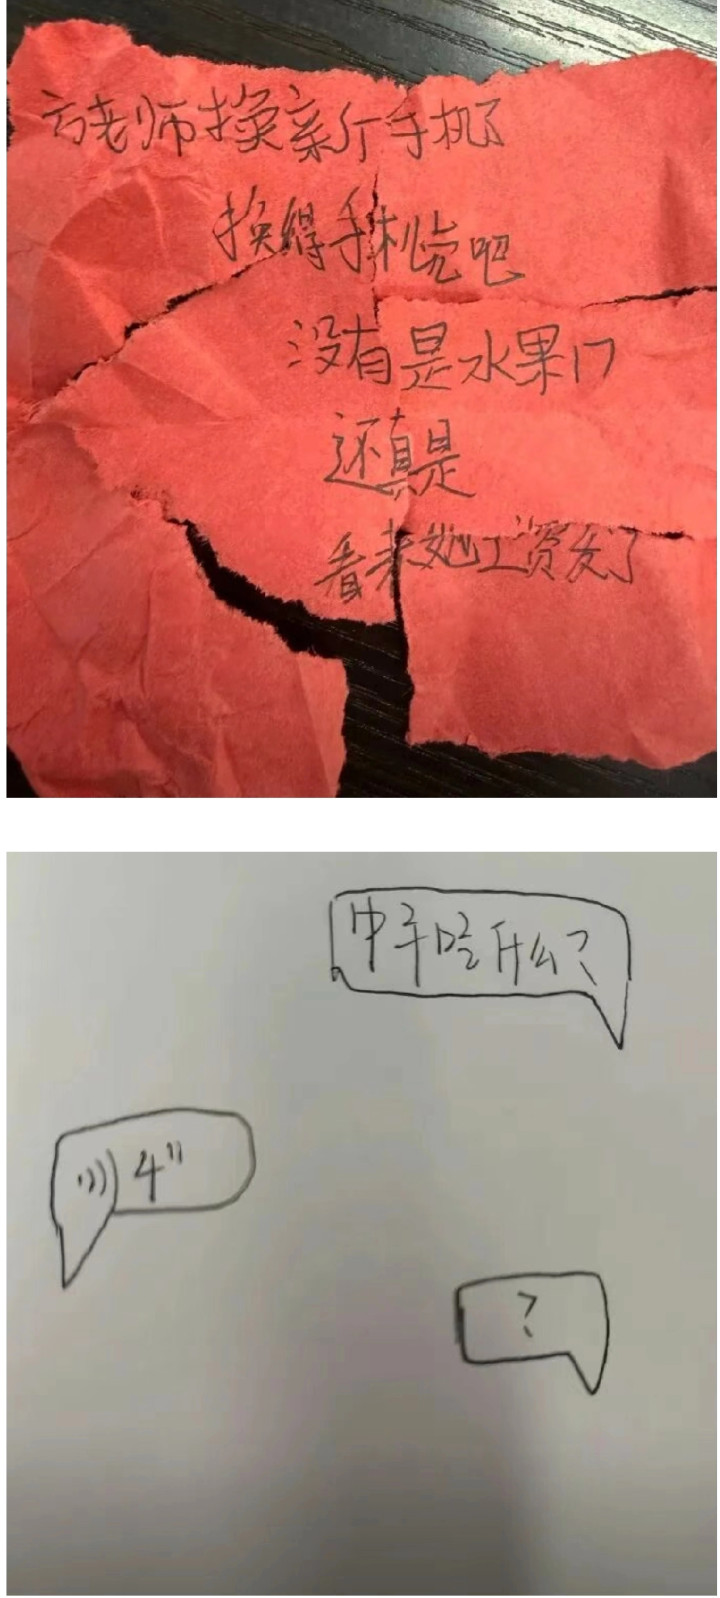 方老师换新手机了
换得手机壳吧
没有是水果17
还真是
看来她工资发了
中午吃什么?
4"
?